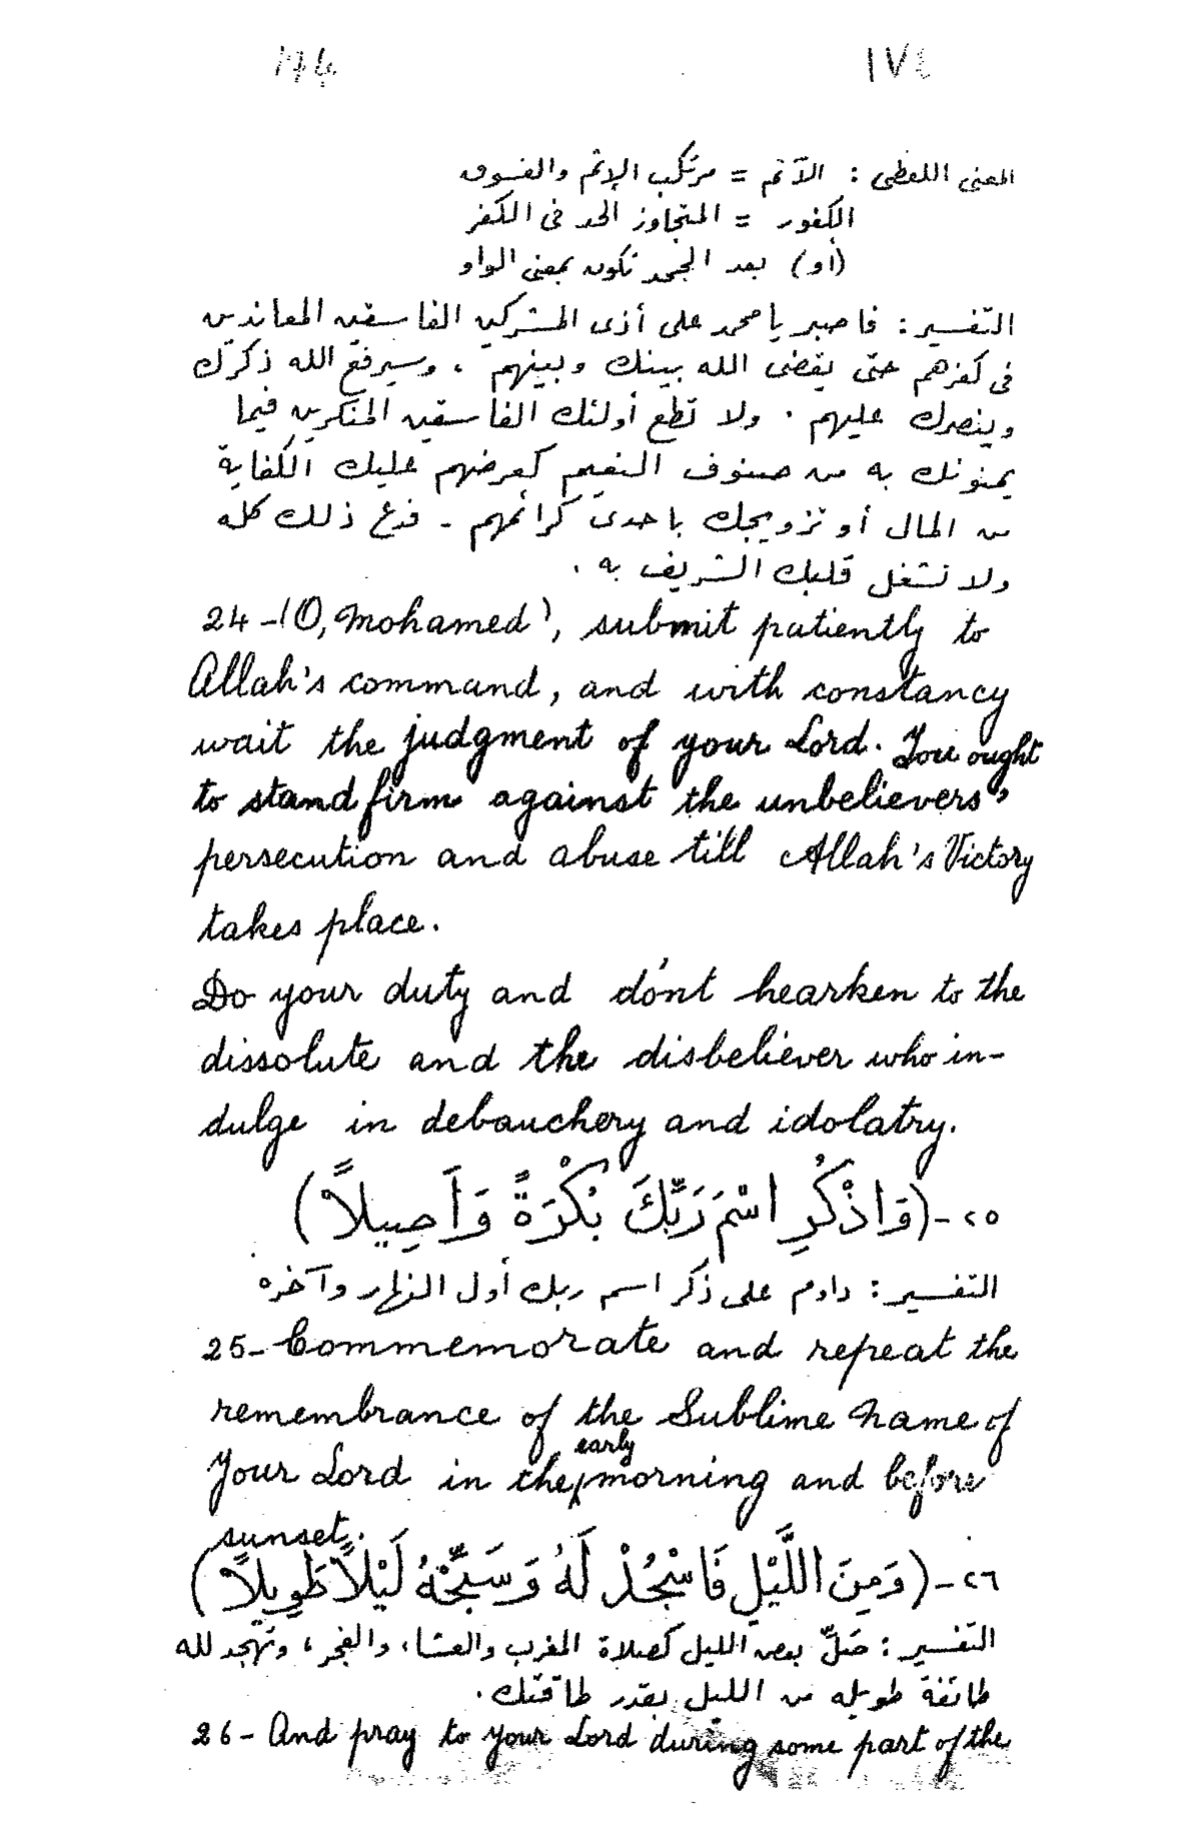 174 ١٧٤
المعنى اللفظى : الآثم = مرتكب الإثم والفسوق
الكفور = المتجاوز الحد فى الكفر
(أو) بعد الجحد تكون بمعنى الواو
التفسير : فاصبر يا محمد على أذى المشركين الفاسقين المعاندين
فى كفرهم حتى يقضى الله بينك وبينهم ، وسيرفع الله ذكرك
وينصرك عليهم . ولا تطع أولئك الفاسقين المنكرين فيما
يمنونك به من صنوف النعيم كعرضهم عليك الكفاية
من المال أو تزويجك باحدى كرائمهم - فدع ذلك كله
ولا تشغل قلبك الشريف به .
24 - (O, Mohamed), submit patiently to
Allah's command, and with constancy
wait the judgment of your Lord. You ought
to stand firm against the unbelievers'
persecution and abuse till Allah's Victory
takes place.
Do your duty and do'nt hearken to the
dissolute and the disbeliever who in-
dulge in debauchery and idolatry.
٢٥ - (وَاذْكُرِ اسْمَ رَبِّكَ بُكْرَةً وَأَصِيلاً)
التفسير : داوم على ذكر اسم ربك أول النهار وآخره
25 - Commemorate and repeat the
remembrance of the Sublime Name of
Your Lord in the early morning and before
sunset.
٢٦ - (وَمِنَ اللَّيْلِ فَاسْجُدْ لَهُ وَسَبِّحْهُ لَيْلاً طَوِيلاً)
التفسير : صَلِّ بعض الليل كصلاة المغرب والعشاء ، والفجر ، وتهجد لله
طائفة طويله من الليل بقدر طاقتك .
26 - And pray to your Lord during some part of the